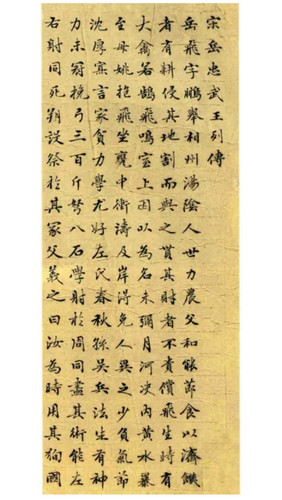 宋岳忠武王列傳
岳飛字鵬舉相州湯陰人世力農父和能節食以濟饑
者有耕侵其地割而與之貰其財者不責償飛生時有
大禽若鵠飛鳴室上因以為名未彌月河決內黃水暴
至母姚抱飛坐甕中衝濤及岸得免人異之少負氣節
沈厚寡言家貧力學尤好左氏春秋孫吳兵法生有神
力未冠挽弓三百斤弩八石學射於周同盡其術能左
右射同死朔設祭於其冢父義之曰汝為時用其狥國